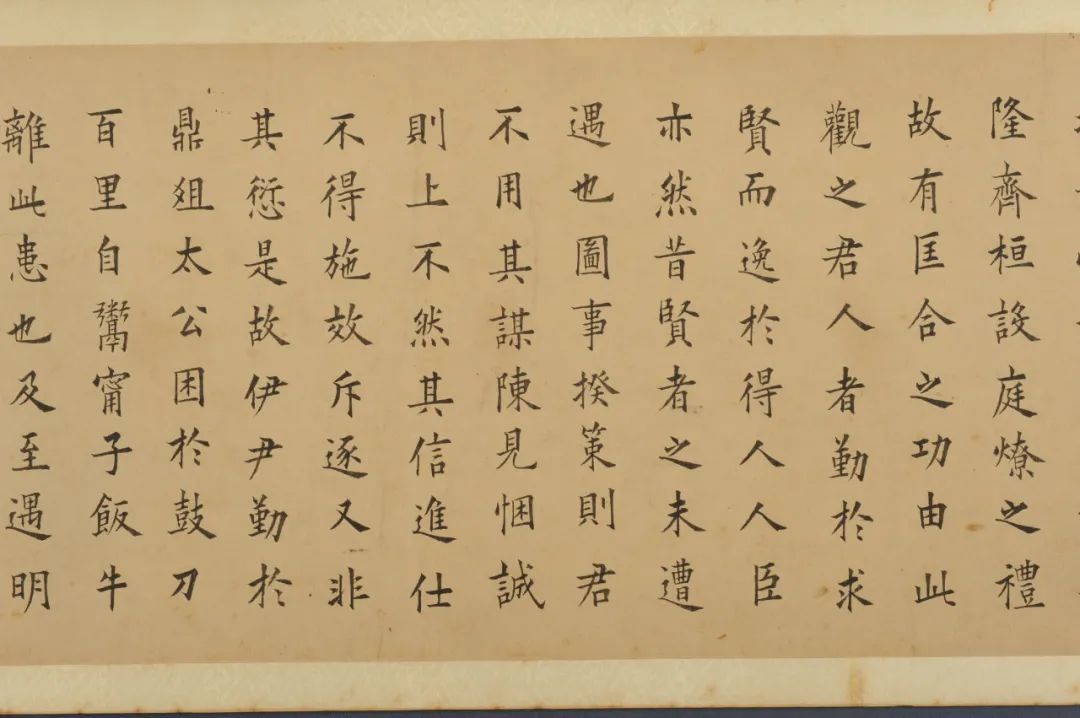 隆齊桓設庭燎之禮
故有匡合之功由此
觀之君人者勤於求
賢而逸於得人人臣
亦然昔賢者之未遭
遇也圖事揆策則君
不用其謀陳見悃誠
則上不然其信進仕
不得施效斥逐又非
其愆是故伊尹勤於
鼎俎太公困於鼓刀
百里自鬻甯子飯牛
離此患也及至遇明